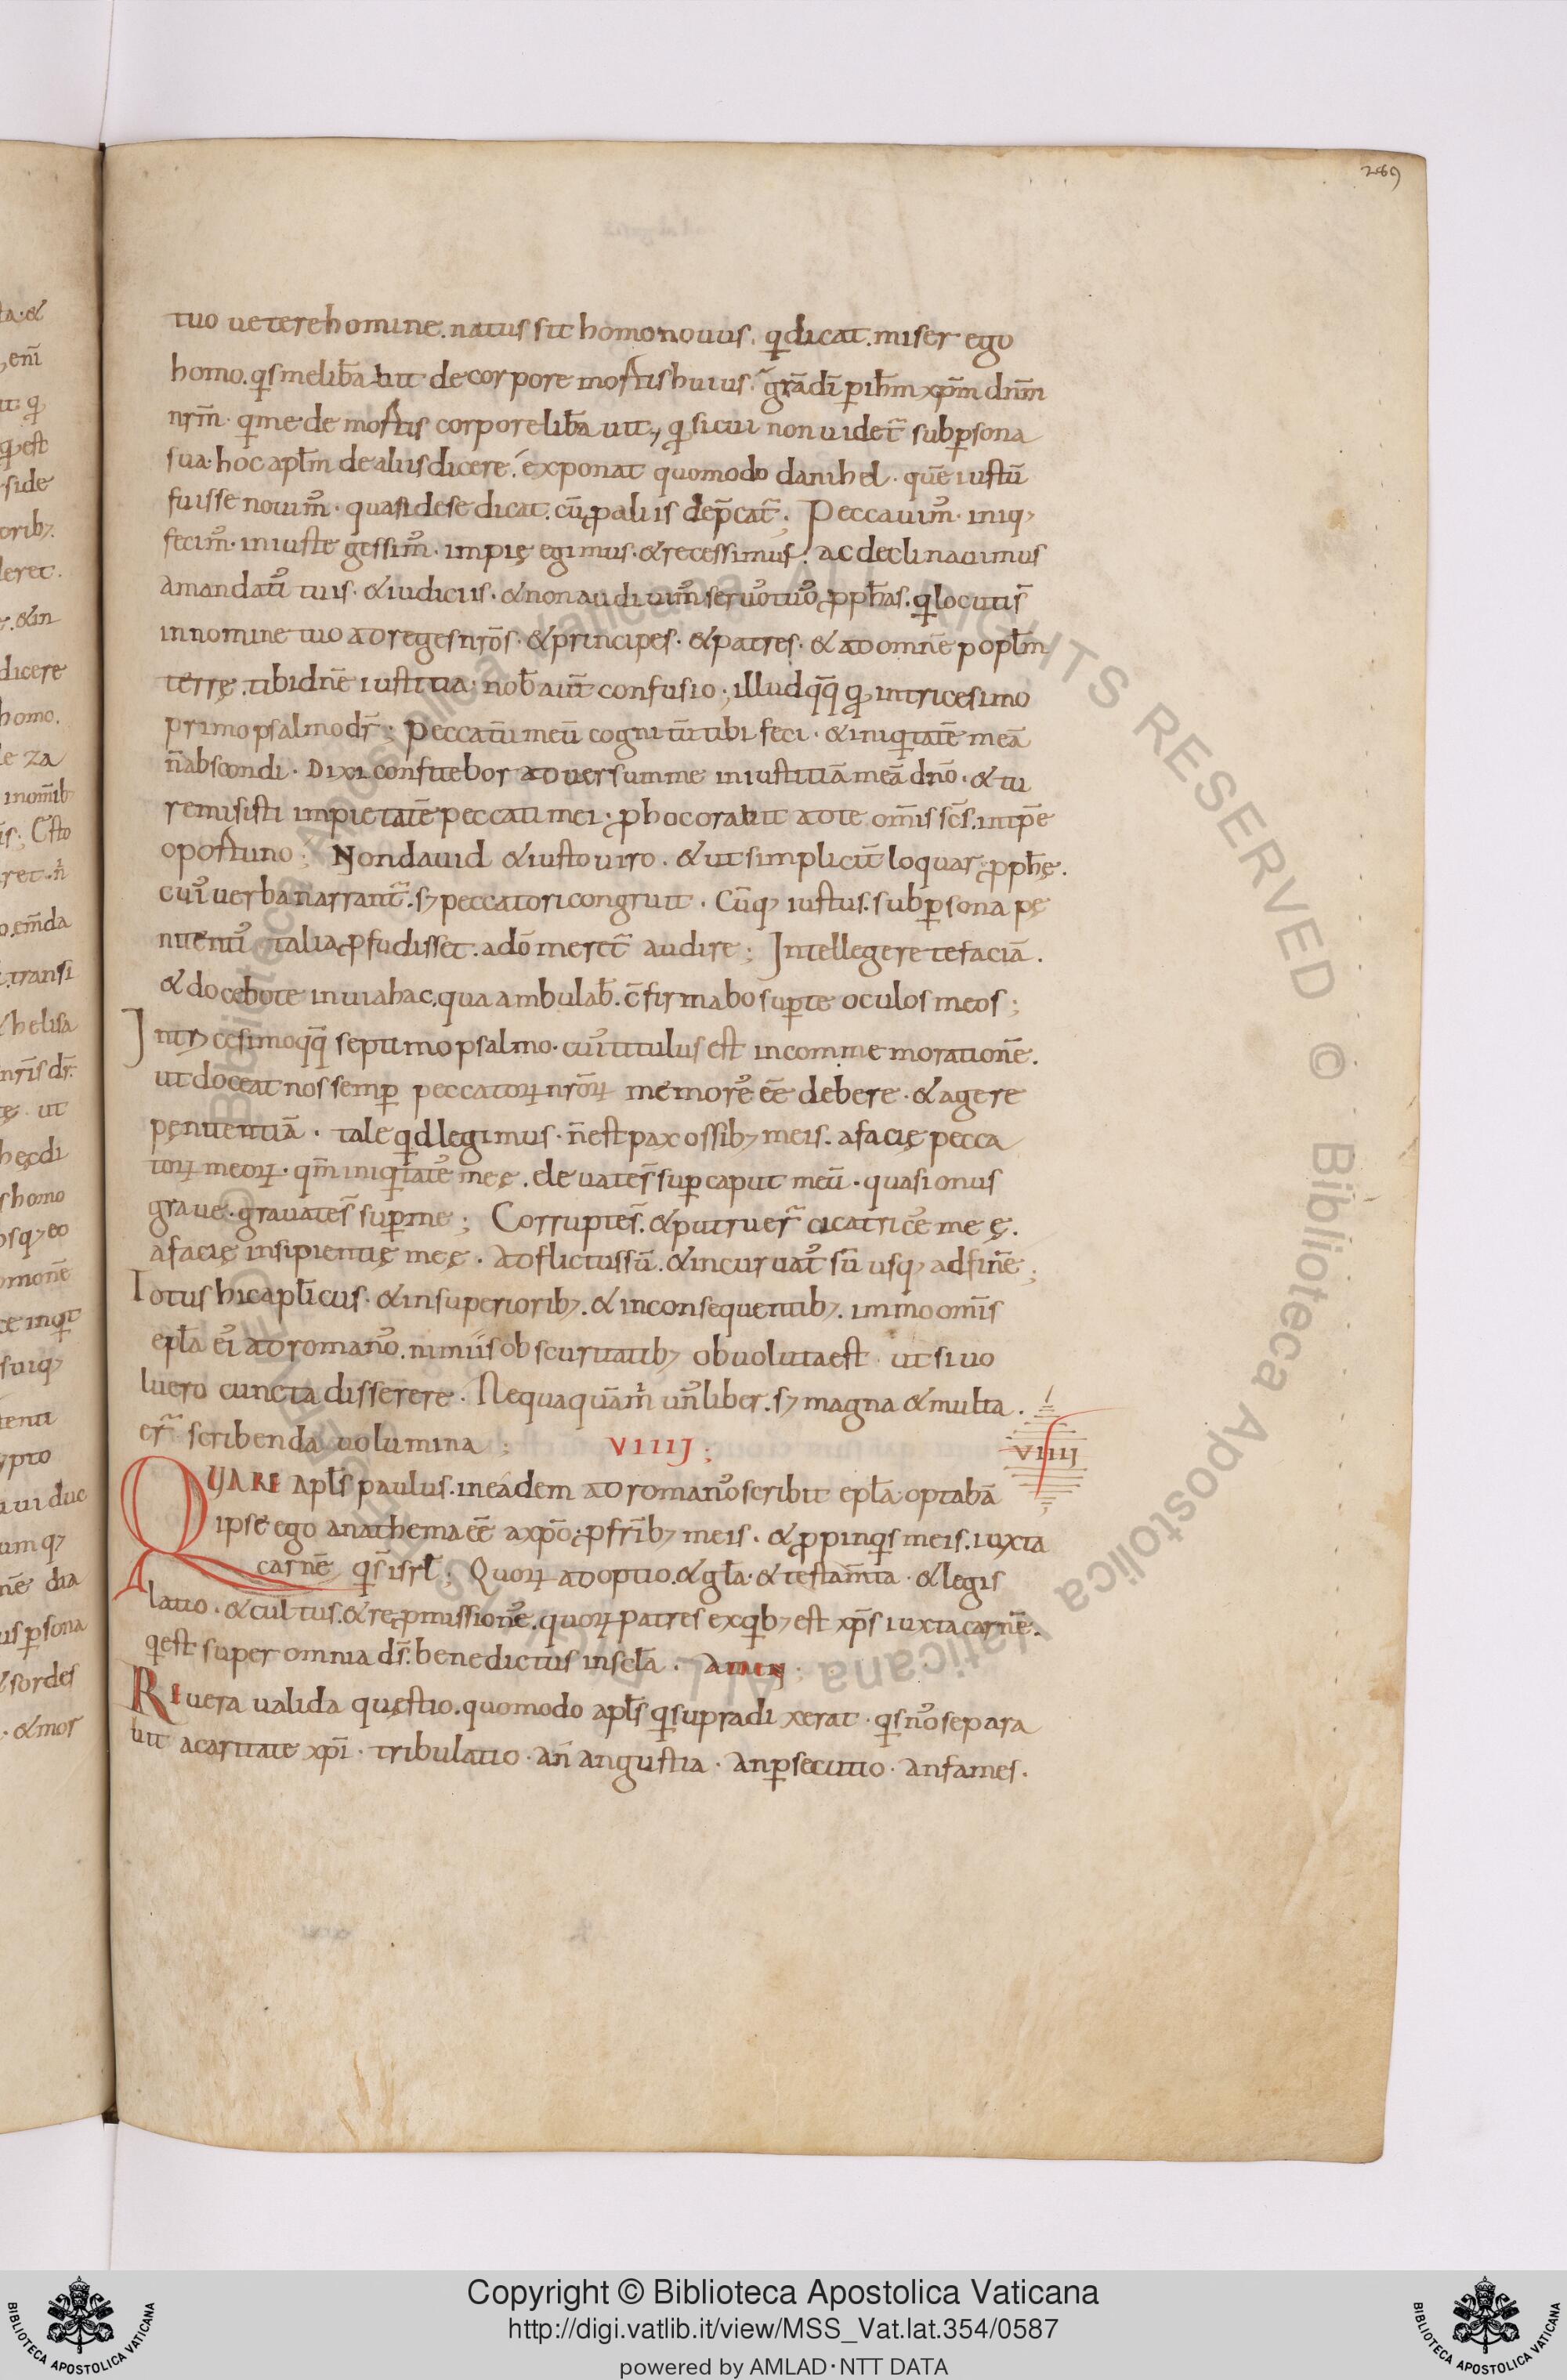 289
tuo uetere homine. natus sit homo nouus. qi dicat. miser ego
homo. qis me libabit de corpore mortis huius. grā dī p ihm xpm dnm
nrm. qi me de mortis corpore libauit, qd si cui non uidet sub psona
sua. hoc aplm de aliis dicere. exponat quomodo danihel. quē iustū
fuisse nouim. quasi de se dicat. cū p aliis dep̄cat; Peccauim. iniq;
fecim. iniuste gessim. impię egimus. & recessimus. ac declinauimus
a mandatis tuis. & iudiciis. & non audiuim seruos tuos pphas. qi locuti s̄
in nomine tuo ad reges nr̄os. & principes. & patres. & ad omnē poplm
terrę. tibi dnē iustitia. nob aut̄ confusio; illud qq qd in tricesimo
primo psalmo dr̄; Peccatū meū cognitū tibi feci. & iniqitatē meā
n̄ abscondi. Dixi confitebor aduersum me iniustitiā meā dnō. & tu
remisisti impietatē peccati mei. p hoc orabit ad te om̄is sc̄s. in tp̄e
oportuno; Non dauid & iusto uiro. & ut simpliciū loquar pphę.
cui uerba narrant̄. s; peccatori congruit. Cūq; iustus. sub psona pę
nitentis talia pfudisset. a dō meret̄ audire; Intellegere te faciā.
& docebo te in uia hac. qua ambulab. c̄firmabo sup te oculos meos;
In tricesimo qq septimo psalmo. cui titulus est in commemorationē.
ut doceat nos semp peccatorꝝ nr̄orꝝ memores ēē debere. & agere
pęnitentiā. tale qid legimus. n̄ est pax ossib; meis. a facię pecca
torꝝ meorꝝ. qm̄ iniqitates meę. eleuate s̄ sup caput meū. quasi onus
graue. grauate s̄ sup me; Corrupte s̄. & putruer̄ cicatrices meę.
a facię insipientię meę. adflictus sū. & incuruat sū usq; ad finē;
Totus hic aplicus. & in superiorib;. & in consequentib;. immo om̄is
epla ei ad romanos. nimiis obscuritatib; obuoluta est. ut si uo
luero cuncta disserere. Nequaquā m̄ un liber. s; magna & multa.
er̄ scribenda uolumina; VIIIJ;
VIIIJ
QUARE apls paulus. in eadem ad romanos scribit epla. optabā
ipse ego anathema ēē a xpō. p frīb; meis. & ppinqis meis. iuxta
carnē qi s̄ isrl; Quorꝝ adoptio. & gla. & testam̄ta. & legis
latio. & cultus. & repmissiones. quorꝝ patres ex qib; est xps iuxta carnē.
qi est super omnia ds̄. benedictus in scla. Amen;
RE uera ualida quęstio. quomodo apls qi supra dixerat. qis nos separa
bit a caritate xpi. tribulatio. an angustia. an psecutio. an fames.
Copyright © Biblioteca Apostolica Vaticana
http://digi.vatlib.it/view/MSS_Vat.lat.354/0587
powered by AMLAD·NTT DATA
BIBLIOTECA APOSTOLICA VATICANA
BIBLIOTECA APOSTOLICA VATICANA